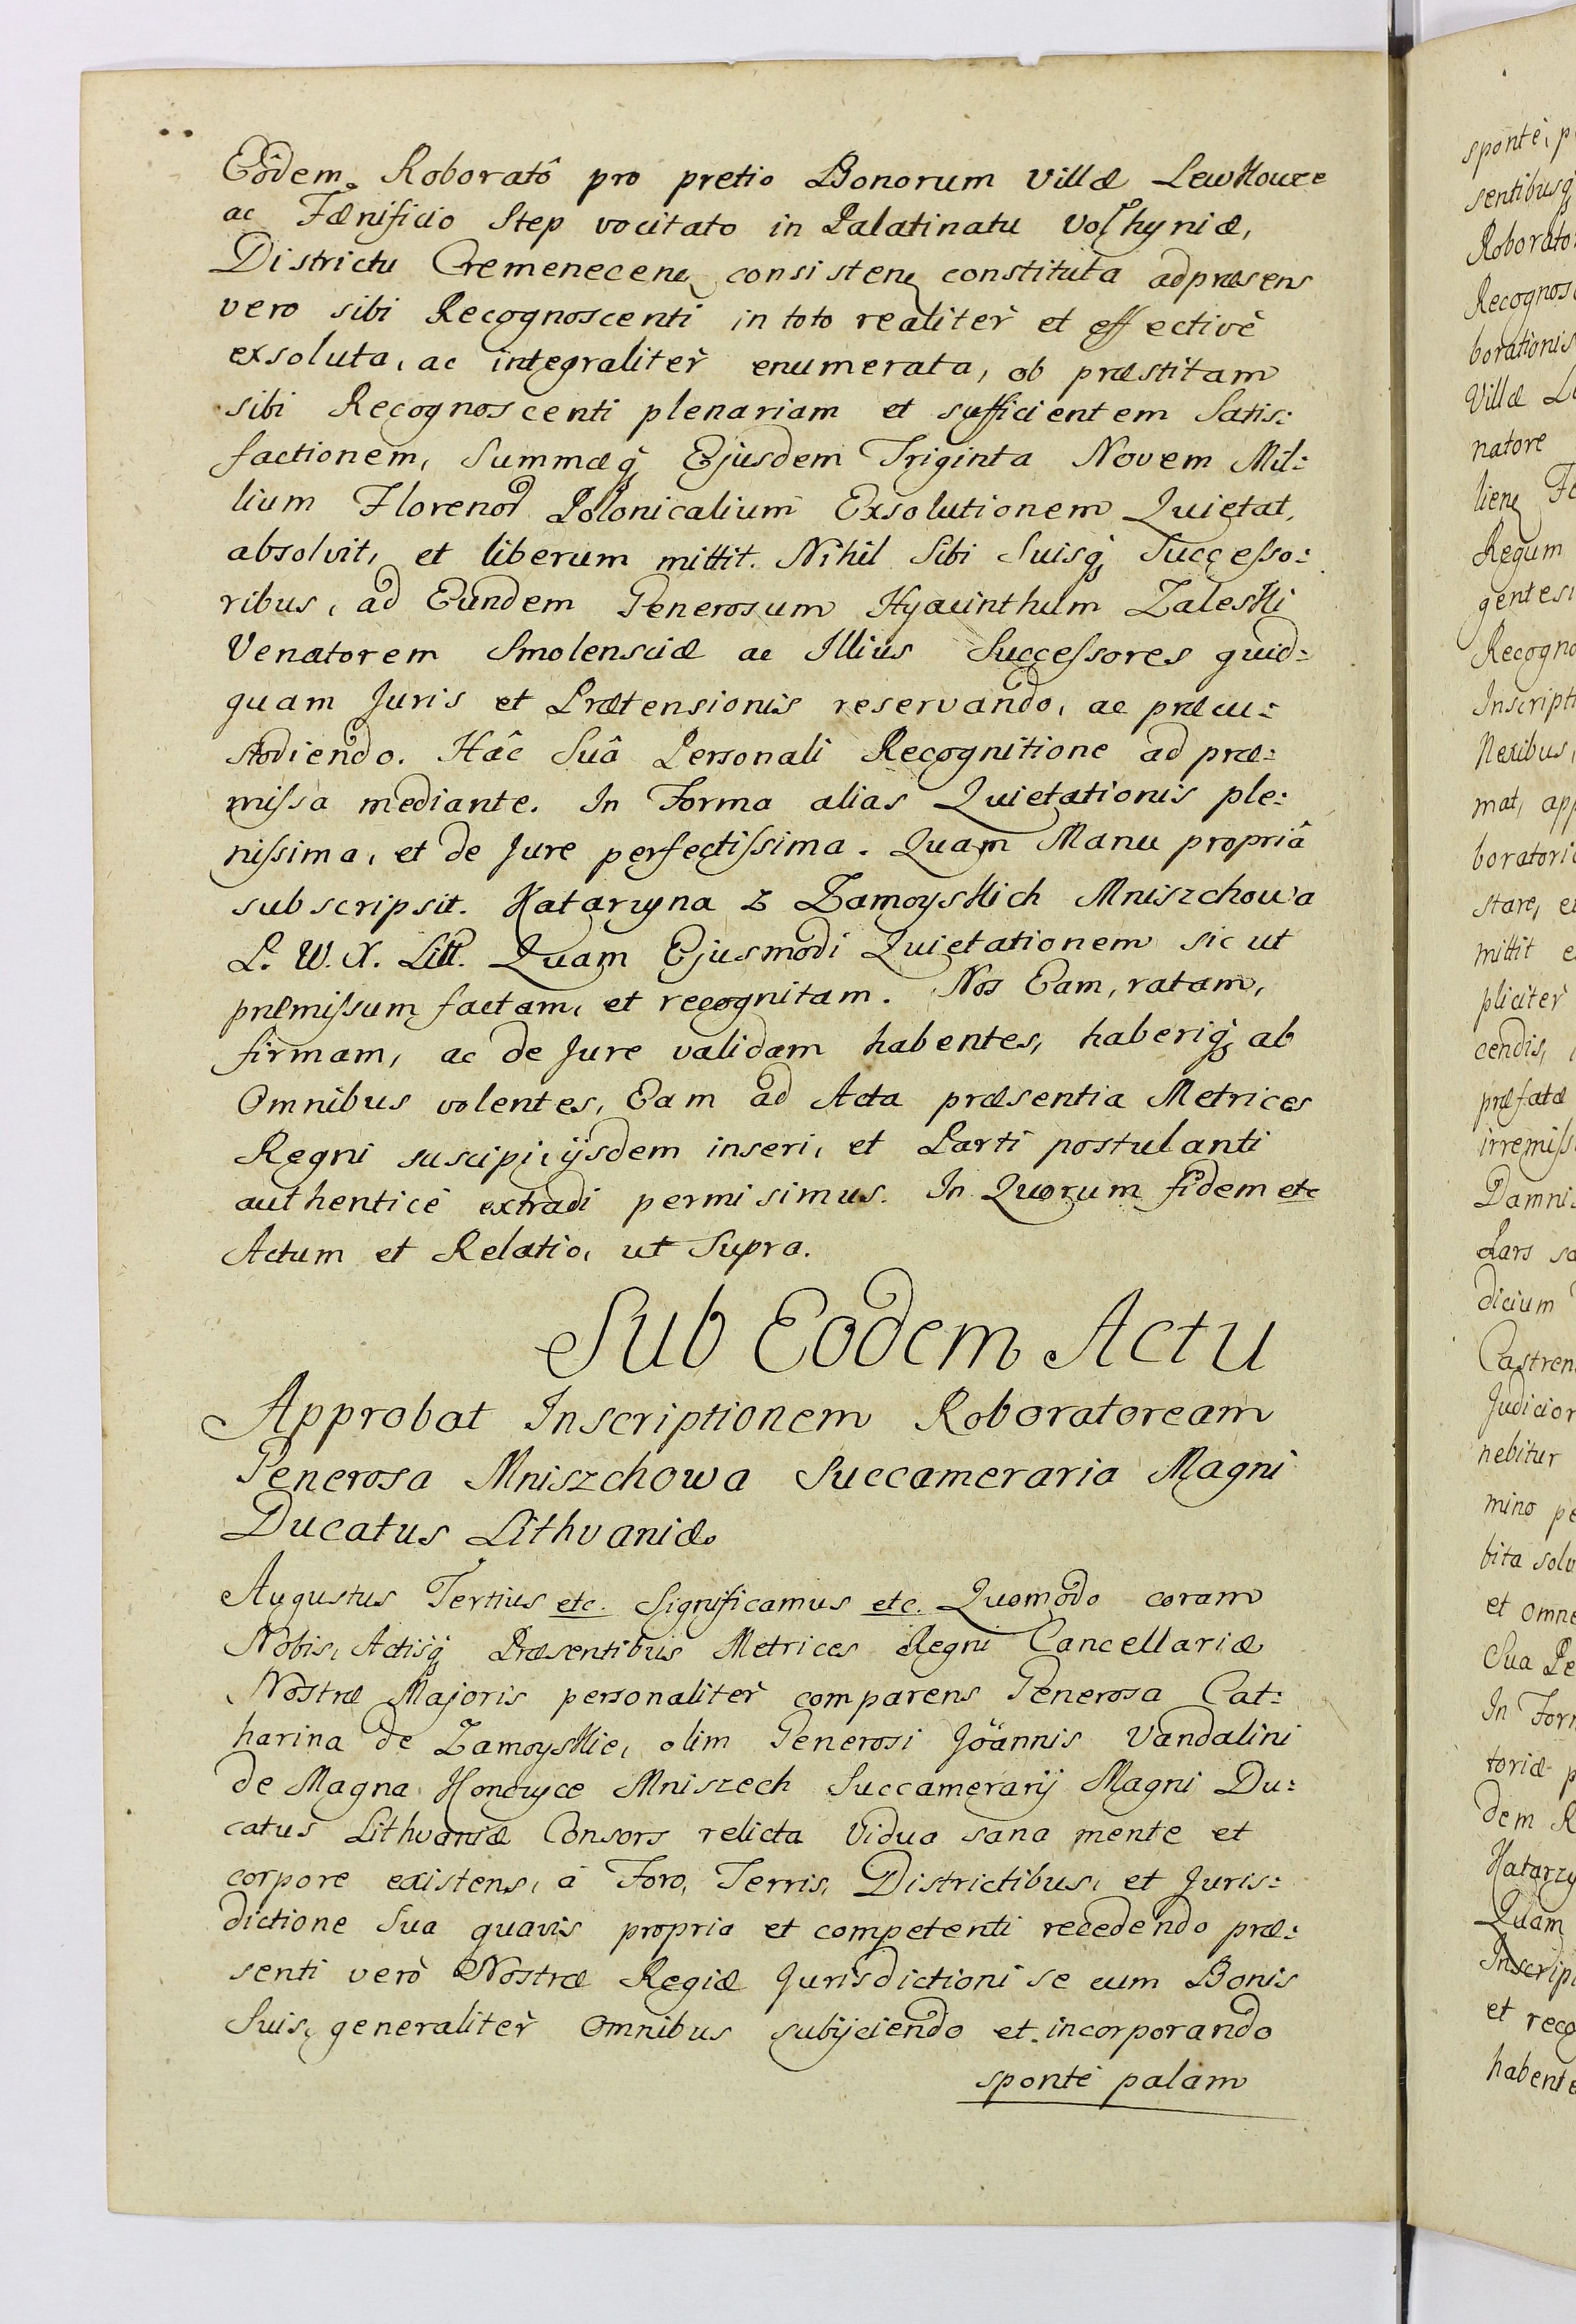 Eôdem Roboratô pro pretio Bonorum Villæ Lewkowce
ac Fænificio Step vocitato in Palatinatu Volhyniæ,
Districtu Cremenecen consisten constituta adpræsens
vero sibi Recognoscenti in toto realiter et effectivè
exsoluta, ac integraliter enumerata, ob præstitam
sibi Recognoscenti plenariam et sufficientem Satis:
factionem, Summæq Ejusdem Triginta Novem Mil:
lium Florenor Polonicalium Exsolutionem Quietat,
absolvit, et liberum mittit. Nihil Sibi Suisq Successo:
ribus, ad Eundem Generosum Hyacinthum Zaleski
Venatorem Smolensciæ ac Illius Successores quid:
quam Juris et Prætensionis reservando, ac præcu:
stodiendo. Hâc Suâ Personali Recognitione ad præ:
missa mediante. In Forma alias Quietationis ple:
nissima, et de Jure perfectissima. Quam Manu propriâ
subscripsit. Katarzyna z Zamoyskich Mniszchowa
P. W. X. Litt. Quam Ejusmodi Quietationem sic ut
præmissum factam, et recognitam. Nos Eam, ratam,
firmam, ac de Jure validam habentes, haberiq ab
Omnibus volentes, Eam ad Acta præsentia Metrices
Regni suscipi, ijsdem inseri, et Parti postulanti
authenticè extradi permisimus. In Quorum fidem etc
Actum et Relatio, ut Supra.
Sub Eodem Actu
Approbat Inscriptionem Roboratoream
Generosa Mniszchowa Succameraria Magni
Ducatus Lithvaniæ.
Augustus Tertius etc. Significamus etc. Quomodo coram
Nobis, Actisq Præsentibus Metrices Regni Cancellariæ
Nostræ Majoris personaliter comparens Generosa Cat:
harina de Zamoyskie, olim Generosi Joannis Vandalini
de Magna Konczyce Mniszech Succamerarij Magni Du:
catus Lithvaniæ Consors relicta Vidua sana mente et
corpore existens, à Foro, Terris, Districtibus, et Juris:
dictione Sua quavis propria et competenti recedendo præ:
senti verò Nostræ Regiæ Jurisdictioni se cum Bonis
Suis, generaliter Omnibus subijciendo et incorporando
spontè palam
sponte, p
sentibusq
Roborato
Recognos
borationis
Villæ L
natore
lien Fo
Regum
gentesi
Recogno
Inscripti
Nexibus,
mat, app
boratori
stare, e
mittit e
pliciter
cendis,
præfatæ
irremiss
Damnis
Pars sa
dicium
Castren
Judicior
nebitur
mino pe
bita solv
et omne
Sua Pe
In Form
toriæ p
dem R
Katarzy
Quam
Inscripi
et reco
habente